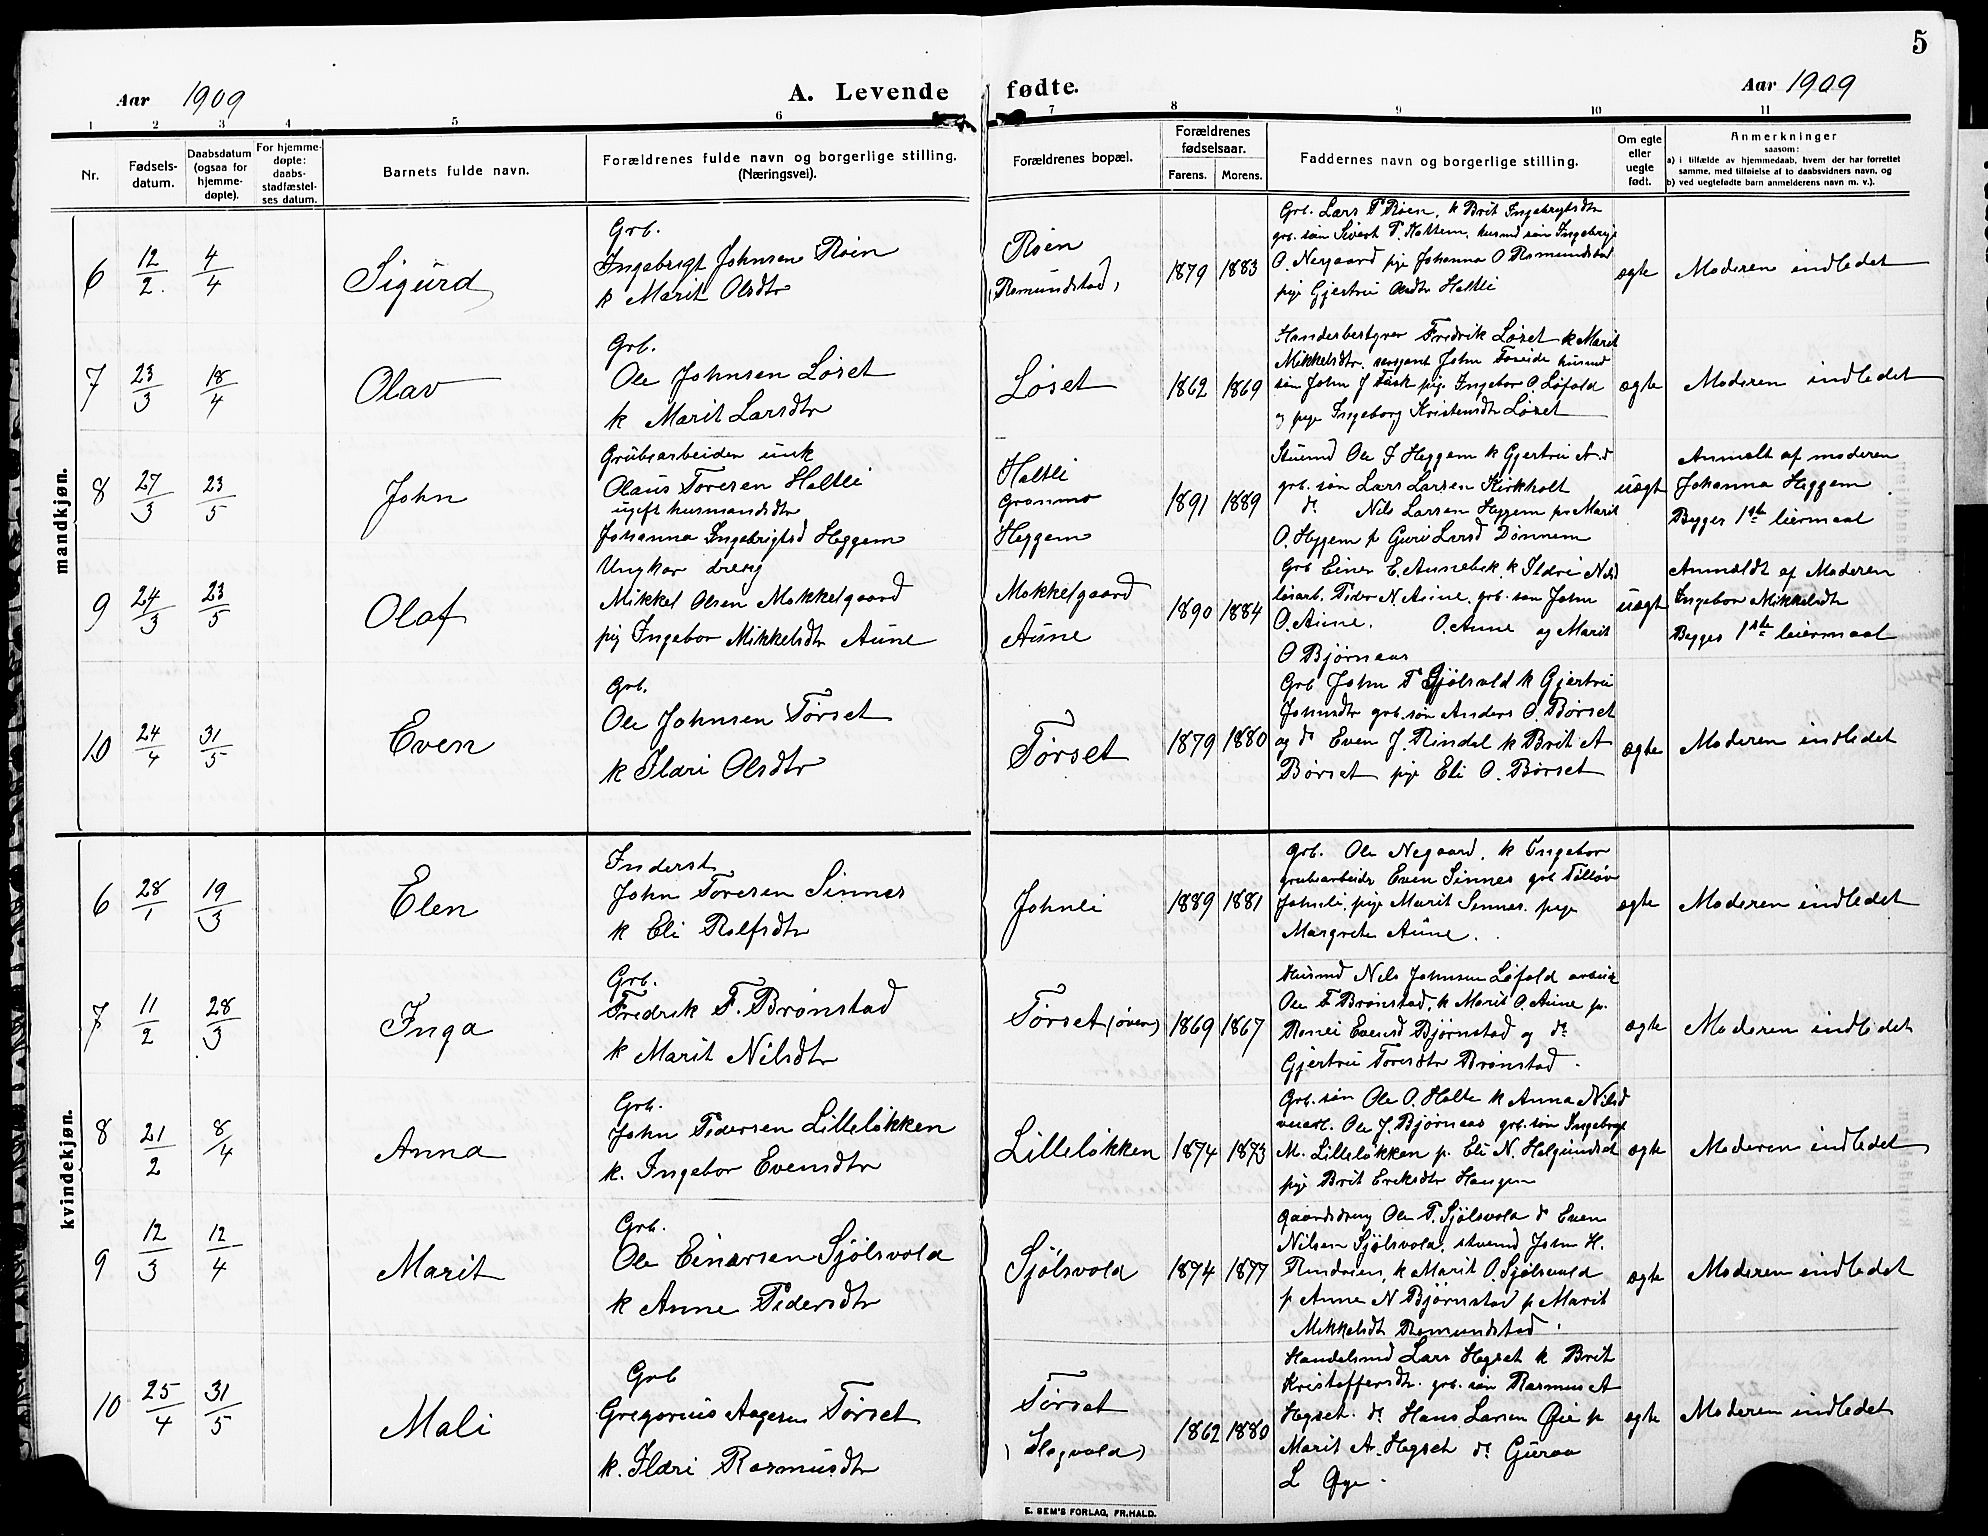 5
Aar 1909
A. Levende fødte.
Aar 1909
1 2 3 4 5 6 7 8 9 10 11
Nr.
Fødsels-
datum.
Daabsdatum
(ogsaa for
hjemme-
døpte).
For hjemme-
døpte:
daabs-
stadfæstel-
ses datum.
Barnets fulde navn.
Forældrenes fulde navn og borgerlige stilling.
(Næringsvei).
Forældrenes bopæl.
Forældrenes
fødselsaar.
Farens. Morens.
Faddernes navn og borgerlige stilling.
Om egte
eller
uegte
født.
Anmerkninger
saasom:
a) i tilfælde av hjemmedaab, hvem der har forrettet
samme, med tilføielse af to daabsvidners navn, og
b) ved uegtefødte barn anmelderens navn m. v.).
mandkjøn.
6 12/2. 4/4 Sigurd
Grb.
Ingebrigt Johnsen Røen
k Marit Olsdtr
Røen
(Romundstad)
1879 1883
Grb. Lars T Røen, k Brit Ingebrigtsdtr
grb. søn Sivert T. Holtem, husmd søn Ingebrigt
O. Nergaard pige Johanna O Romundstad
pige Gjertru Olsdtr Haltli
ægte
Moderen indledet
7 23/3 18/4 Olav
Grb.
Ole Johnsen Løset
k Marit Larsdtr
Løset
1862 1869
Handelsbestyrer Fredrik Løset k Marit
Mikkelsdtr. sergeant John Foseide husmd
søn John J Fask pige Ingebor O. Løfald
og pige Ingeborg Kristensdtr Løset
ægte
Moderen indledet
8 27/3 23/5 John
Grubearbeider unk
Olaus Toresen Haltli
ugift husmandsdtr
Johanna Ingebrigtsd Heggem
Haltli
Granmo
Heggem
1891 1889
Stuemd Ole I Heggem k Gjertru A.d
grb. søn Lars Larsen Kirkholt
ds Nils Larsen Heggem p. Marit
O. Heggem p Guri Larsd Dønnem
uægt
Anmelt af moderen
Johanna Heggem
Begges 1ste leiermaal
9 24/3 23/5 Olaf
Ungkar dreng
Mikkel Olsen Mokkelgaard
pig Ingebor Mikkelsdtr Aune
Mokkelgaard
Aune
1890 1884
Grb Einer E. Aunebak, k Ildri Nilsd
løsarb. Peder N. Aune, grb. søn John
O. Aune. O. Aune og Marit
O Bjørnaas
uægt
Anmeldt af Moderen
Ingebor Mikkelsdtr
Begges 1ste leiermaal
10 24/4 31/5 Even
Grb.
Ole Johnsen Tørset
k Ildri Olsdtr
Tørset
1879 1880
Grb John T Sjølsvold k Gjertru
Johnsdtr grb. søn Anders O. Børset
og ds Even J. Rindal k Brit A
Børset pige Eli O. Børset
ægte
Moderen indledet
kvindekjøn.
6 28/1 19/3 Elen
Inderst
John Toresen Sinnes
k Eli Rolfsdtr
Johnli
1889 1881
grb. Ole Negaard, k Ingebor
grubearbeider Even Sinnes grb Tølløv
Johnli, pige Marit Sinnes. pige
Margrete Aune.
ægte
Moderen indledet
7 11/2 28/3 Inga
Grb.
Fredrik F. Brønstad
k Marit Nilsdtr
Tørset (øvre)
1869 1867
Husmd Nils Johnsen Løfald arbeid
Ole F Brønstad, k Marit O. Aune p.
Evensd Bjørnstad og ds
Gjertru Toresdtr Brønstad.
ægte
Moderen indledet
8 21/2 8/4 Anna
Grb.
John Pedersen Lilleløkken
k. Ingebor Evensdtr
Lilleløkken
1874 1873
Grb. søn Ole O. Holte k Anna Nilsd
veiarb. Ole J. Bjørnaas grb. søn Ingebrigt
M. Lilleløkken p. Eli N. Helgundset
pige Brit Eriksdtr Haugen
ægte
Moderen indledet
9 12/3 12/4 Marit
Grb.
Ole Einarsen Sjølsvold
k Anne Pedersdtr
Sjølsvold
1874 1877
Gaardsdreng Ole T. Sjølsvold ds Even
Nilsen Sjølsvold, stuemd John H.
k Marit O. Sjølsvold
p Anne N Bjørnstad p Marit
Mikkelsdtr Romundstad.
ægte
Moderen indledet
10 25/4 31/5 Mali
Grb
Gregorius Aagesen Tørset
k. Ildri Rasmusdtr
Tørset
(Slogvold)
1862 1880
Handelsmd Lars Hegset k Brit
Kristoffersdtr. grb. søn Rasmus A
Hegset. ds Hans Larsen Øie p
Marit A. Hegset ds Guroa
L Øye.
ægte
Moderen indledet
E. SEM'S FORLAG, FR.HALD.